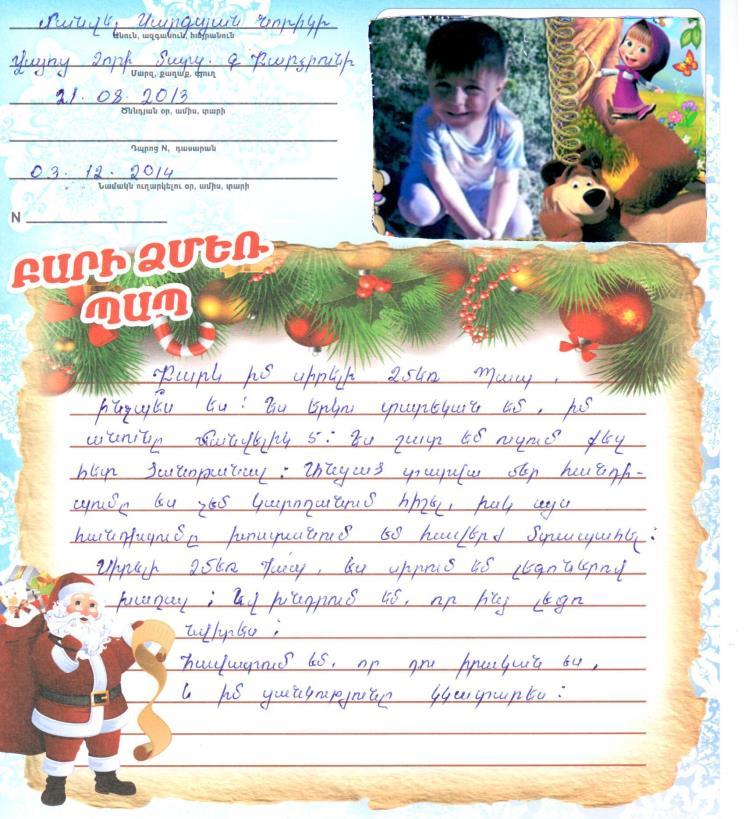 Մանվել Սարգսյան Նորիկի
Անուն, ազգանուն, հայրանուն
Վայոց Ձորի մարզ. գ Քարագլուխ
Մարզ, քաղաք, գյուղ
21. 08. 2013
Ծննդյան օր, ամիս, տարի
Դպրոց N, դասարան
03. 12. 2014
Նամակն ուղարկելու օր, ամիս, տարի
N
ԲԱՐԻ ՁՄԵՌ
ՊԱՊ
Բարև իմ սիրելի Ձմեռ Պապ,
ինչպե՞ս ես: Ես երկու տարեկան եմ, իմ
անունը Մանվելիկ է: Ես շատ եմ ուզում քեզ
հետ ծանոթանալ: Անցած տարվա մեր հանդի-
պումը ես չեմ կարողանում հիշել, իսկ այս
հանդիպումը խոստանում եմ հավերժ մտապահել:
Սիրելի Ձմեռ Պապ, ես սիրում եմ լեգոներով
խաղալ: Եվ խնդրում եմ, որ ինձ լեգո
նվիրես:
Հավատում եմ, որ դու իրական ես,
և իմ ցանկությունը կկատարես: